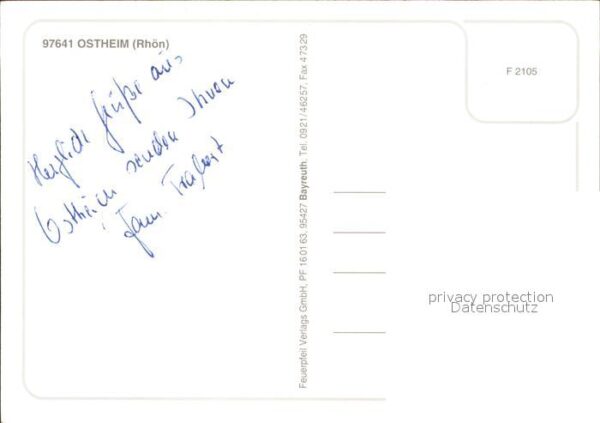 97641 OSTHEIM (Rhön)
F 2105
Herzliche Grüße aus
Ostheim senden Ihnen
Fam. Trabert
Feuerpfeil Verlags GmbH, PF 16 01 63, 95427 Bayreuth. Tel. 0921/46257. Fax 47329
privacy protection
Datenschutz